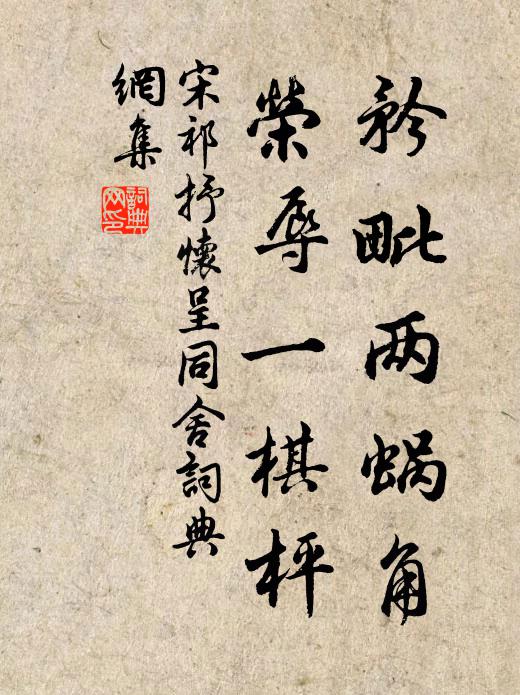 矜毗两蜗角
荣辱一棋枰
宋祁抒懷呈同舍詞典
網集
詞典
网印